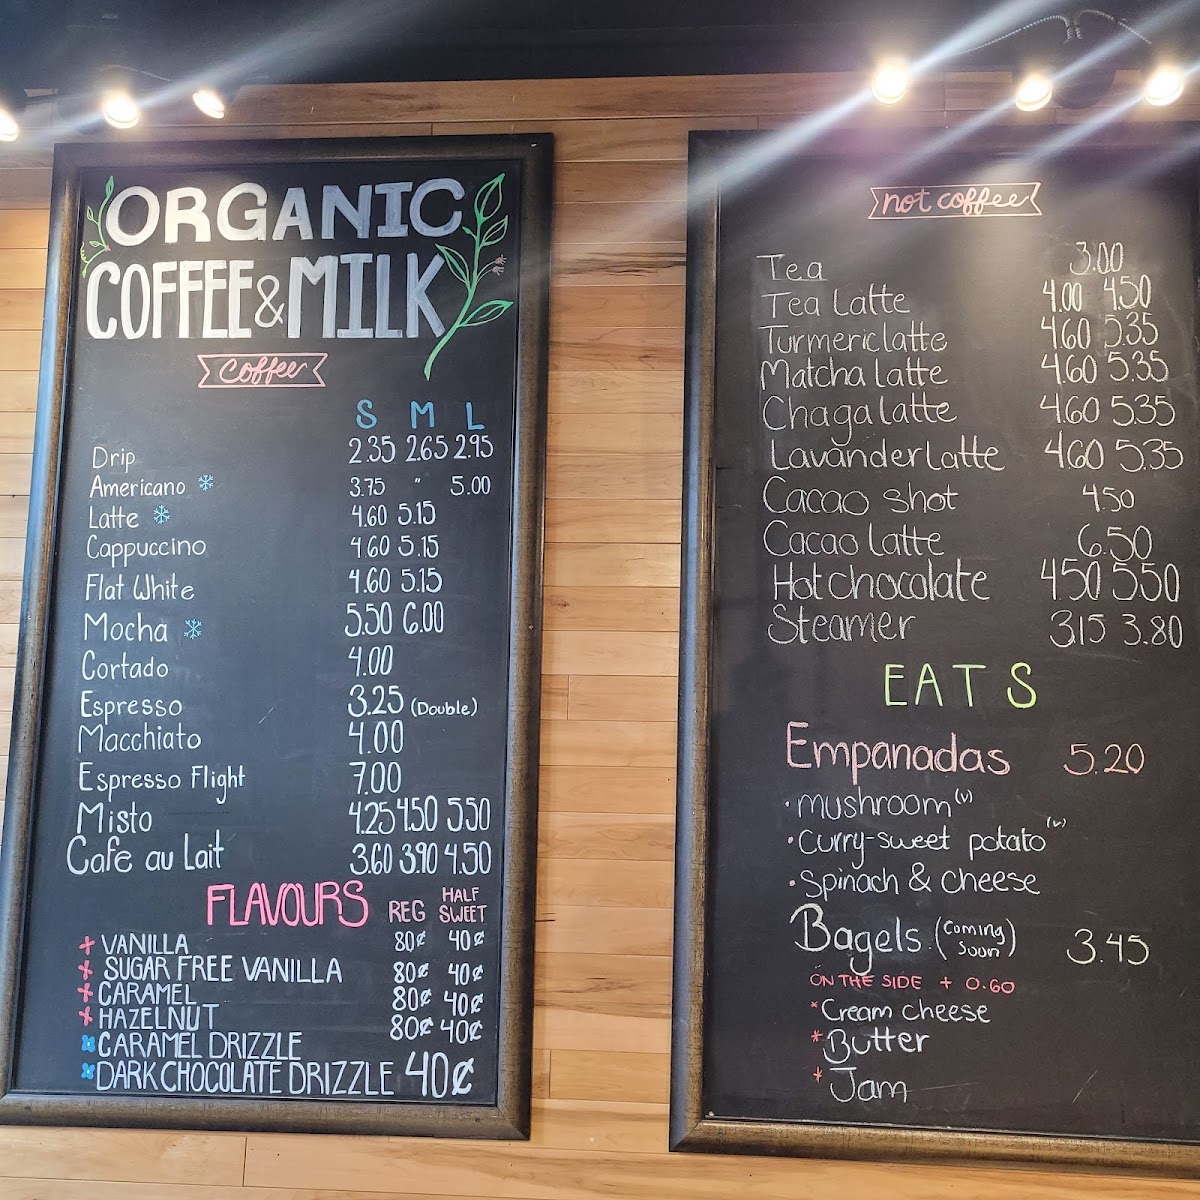 ORGANIC
COFFEE & MILK
coffee
S M L
Drip 2.35 2.65 2.95
Americano 3.75 " 5.00
Latte 4.60 5.15
Cappuccino 4.60 5.15
Flat White 4.60 5.15
Mocha 5.50 6.00
Cortado 4.00
Espresso 3.25 (Double)
Macchiato 4.00
Espresso Flight 7.00
Misto 4.25 4.50 5.50
Cafe au Lait 3.60 3.90 4.50
FLAVOURS REG HALF SWEET
VANILLA 80¢ 40¢
SUGAR FREE VANILLA 80¢ 40¢
CARAMEL 80¢ 40¢
HAZELNUT 80¢ 40¢
CARAMEL DRIZZLE
DARK CHOCOLATE DRIZZLE 40¢
not coffee
Tea 3.00
Tea Latte 4.00 4.50
Turmeric latte 4.60 5.35
Matcha Latte 4.60 5.35
Chaga latte 4.60 5.35
Lavander Latte 4.60 5.35
Cacao shot 4.50
Cacao Latte 6.50
Hot chocolate 4.50 5.50
Steamer 3.15 3.80
EATS
Empanadas 5.20
• mushroom (v)
• Curry-sweet potato (v)
• Spinach & cheese
Bagels (Coming Soon) 3.45
ON THE SIDE + 0.60
* Cream cheese
* Butter
* Jam